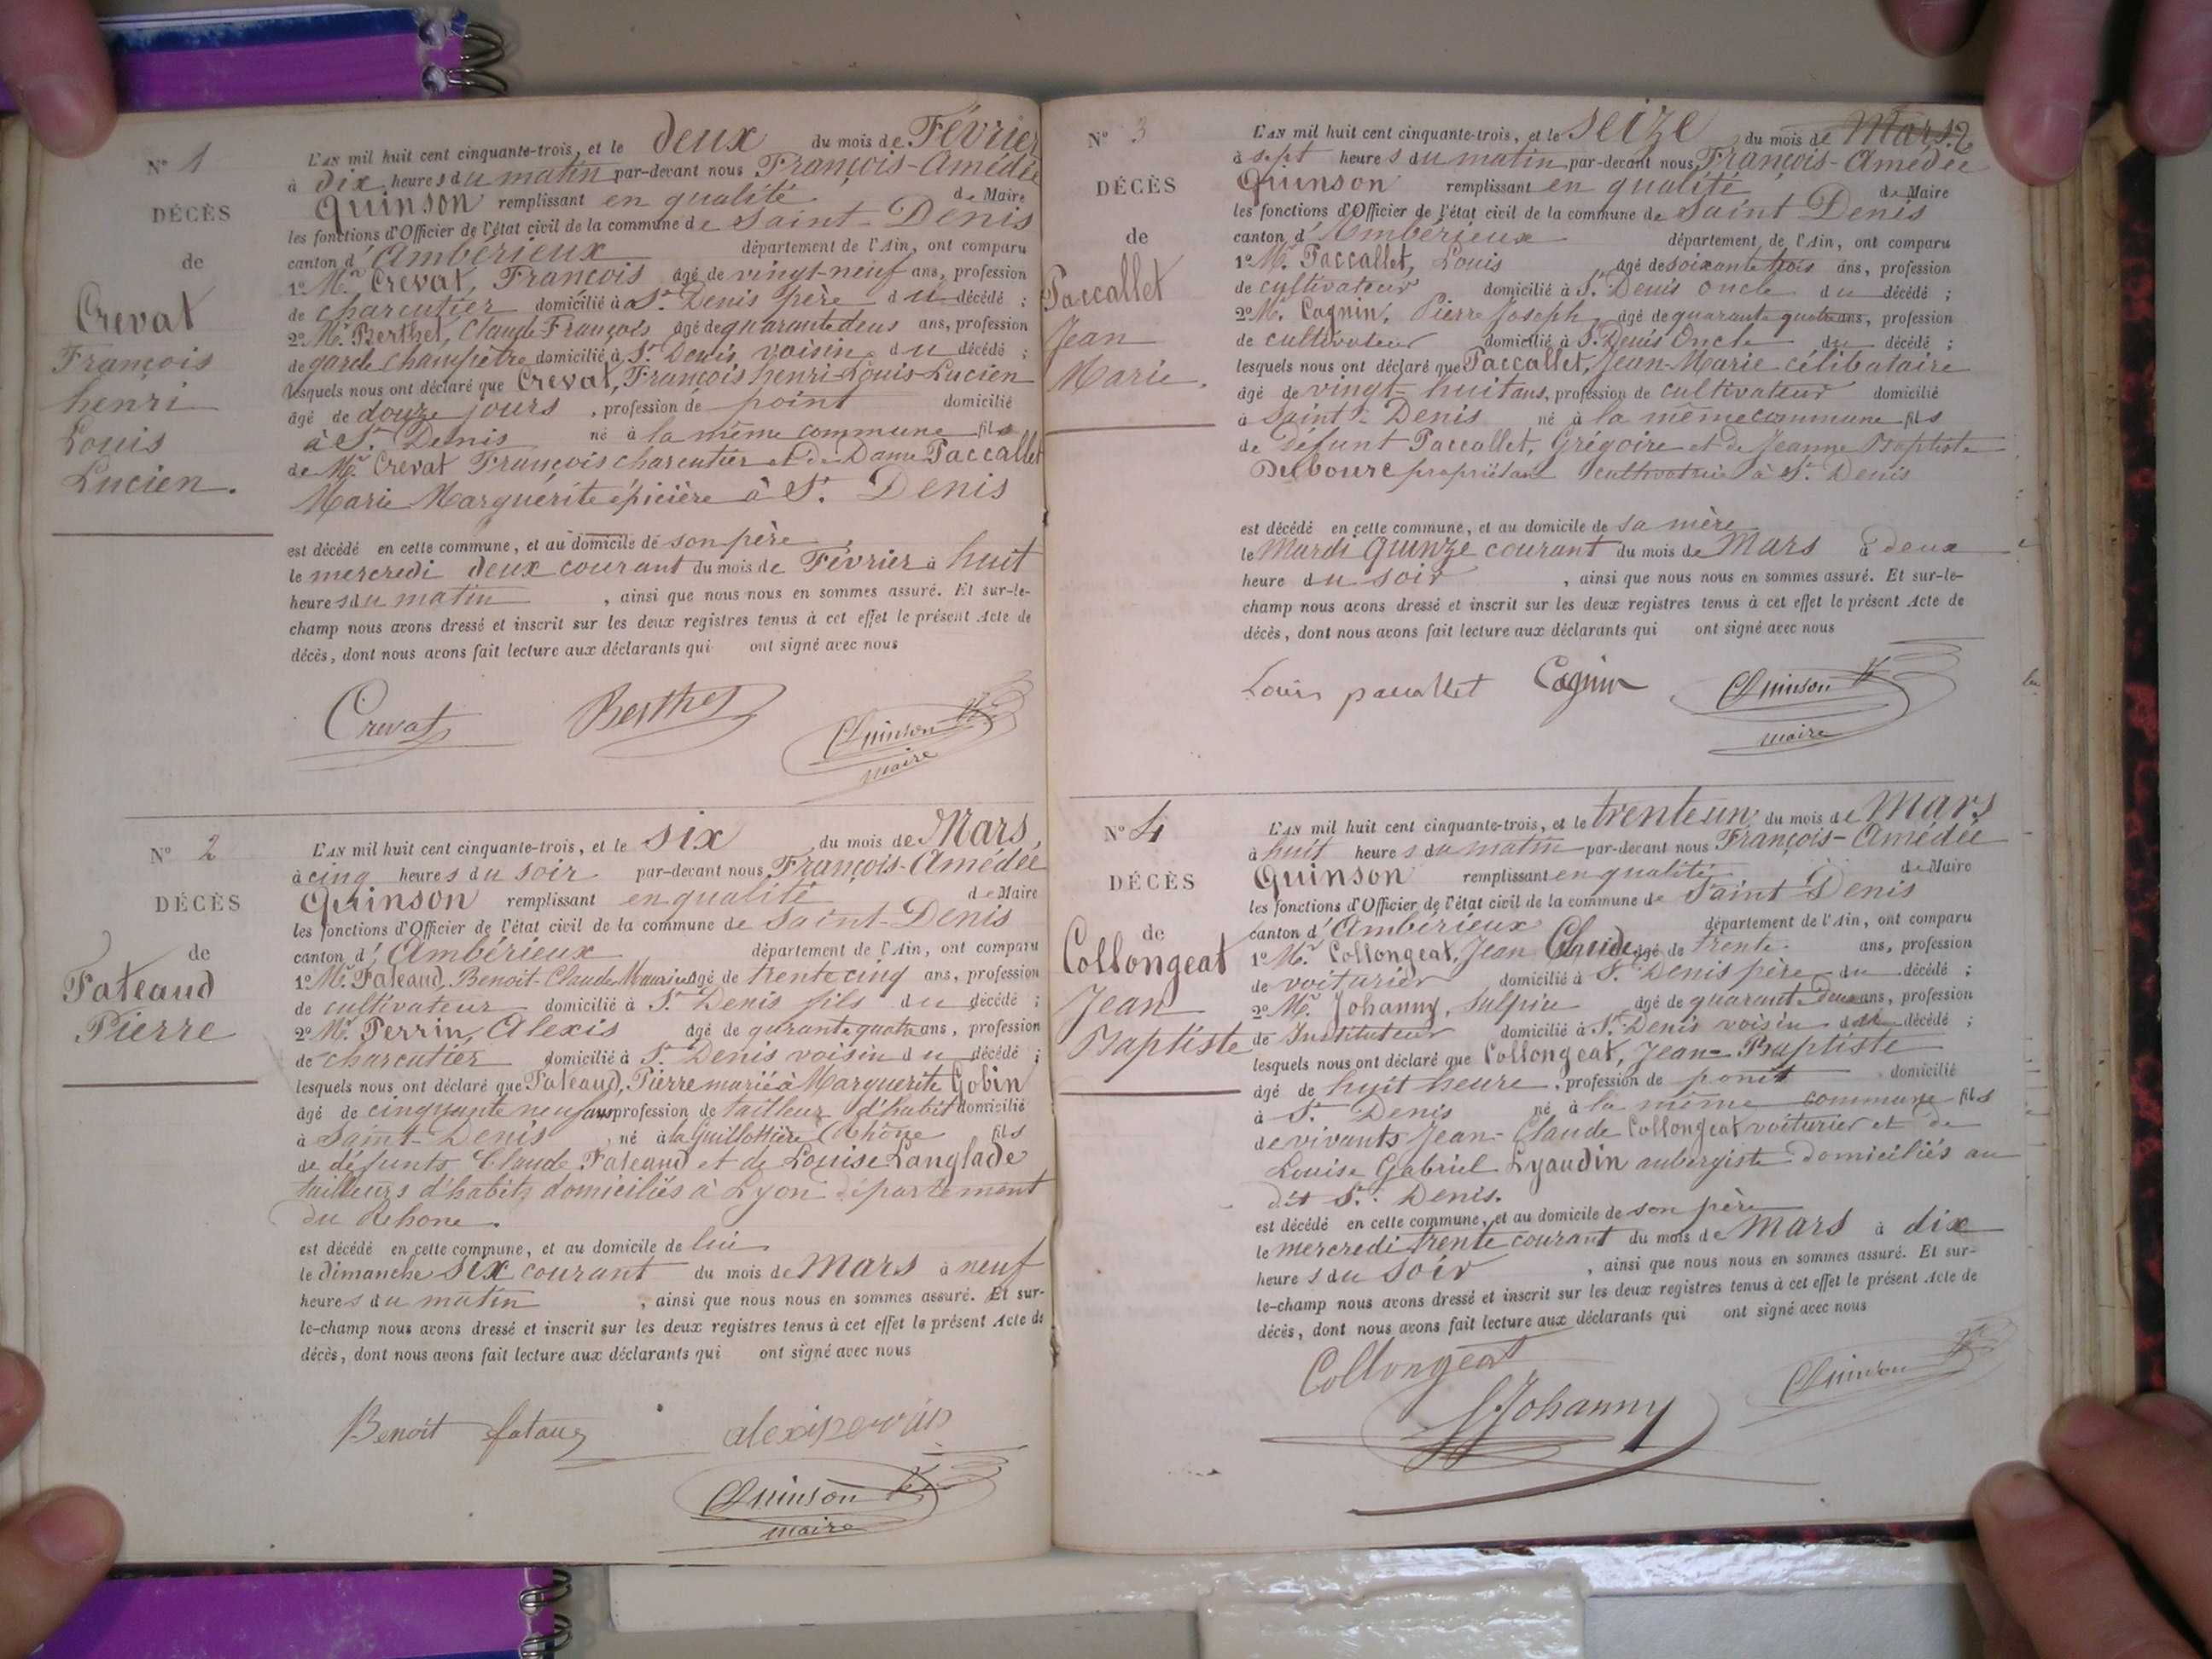 N° 1
DÉCÈS
de
Crevat
François
henri
Louis
Lucien.
L'AN mil huit cent cinquante-trois, et le deux du mois de Février
à dix heures du matin par-devant nous François-Amédée
Quinson remplissant en qualité de Maire
les fonctions d'Officier de l'état civil de la commune de Saint-Denis
canton d'Ambérieux département de l'Ain, ont comparu
1° Mr Crevat, François âgé de vingt-neuf ans, profession
de charcutier domicilié à St. Denis père du décédé ;
2° Mr. Berthet, Claude François âgé de quarante deus ans, profession
de garde champêtre domicilié à St. Denis voisin du décédé ;
lesquels nous ont déclaré que Crevat, François henri-Louis-Lucien
âgé de douze jours , profession de point domicilié
à St. Denis né à la même commune fils
de Mr. Crevat François charcutier et de Dame Paccallet
Marie Marguérite épicière à St. Denis
est décédé en cette commune, et au domicile de son père
le mercredi deux courant du mois de Février à huit
heures du matin , ainsi que nous nous en sommes assuré. Et sur-le-
champ nous avons dressé et inscrit sur les deux registres tenus à cet effet le présent Acte de
décès, dont nous avons fait lecture aux déclarants qui ont signé avec nous
Crevat Berthet Quinson
maire
N° 2
DÉCÈS
de
Fateaud
Pierre
L'AN mil huit cent cinquante-trois, et le six du mois de Mars,
à cinq heures du soir par-devant nous François-Amédée
Quinson remplissant en qualité de Maire
les fonctions d'Officier de l'état civil de la commune de Saint-Denis
canton d'Ambérieux département de l'Ain, ont comparu
1° Mr. Fateaud, Benoit-Claude Maurice âgé de trente cinq ans, profession
de cultivateur domicilié à St. Denis fils du décédé ;
2° Mr. Perrin, Alexis âgé de qurante quatre ans, profession
de charcutier domicilié à St. Denis voisin du décédé ;
lesquels nous ont déclaré que Fateaud, Pierre marié à Marguerite Gobin
âgé de cinquante neuf ans profession de tailleur d'habit domicilié
à Saint-Denis , né à la Guillottière (Rhône fils
de défunts Claude Fateaud et de Louise Langlade
tailleurs d'habits domiciliés à Lyon département
du Rehone.
est décédé en cette commune, et au domicile de lui
le dimanche six courant du mois de Mars à neuf
heures du matin , ainsi que nous nous en sommes assuré. Et sur-
le-champ nous avons dressé et inscrit sur les deux registres tenus à cet effet le présent Acte de
décès, dont nous avons fait lecture aux déclarants qui ont signé avec nous
Benoit fataud alexis perrin
Quinson
maire
N° 3
DÉCÈS
de
Paccallet
Jean
Marie.
L'AN mil huit cent cinquante-trois, et le seize du mois de Mars
à sept heures du matin par-devant nous François-Amédée
Quinson remplissant en qualité de Maire
les fonctions d'Officier de l'état civil de la commune de Saint Denis
canton d'Ambérieux département de l'Ain, ont comparu
1° Mr. Paccallet, Louis âgé de soixante trois ans, profession
de cultivateur domicilié à St. Denis oncle du décédé ;
2° Mr. Cagnin, Pierre Joseph, âgé de quarante quatre ans, profession
de cultivateur domicilié à St. Denis Oncle du décédé ;
lesquels nous ont déclaré que Paccallet, Jean-Marie célibataire
âgé de vingt-huit ans, profession de cultivateur domicilié
à Saint-Denis né à la même commune fils
de Défunt Paccallet, Grégoire et de Jeanne Baptiste
Dubourc propriétaire cultivatrice à St. Denis
est décédé en cette commune, et au domicile de sa mère
le Mardi quinze courant du mois de Mars à deux
heure du soir , ainsi que nous nous en sommes assuré. Et sur-le-
champ nous avons dressé et inscrit sur les deux registres tenus à cet effet le présent Acte de
décès, dont nous avons fait lecture aux déclarants qui ont signé avec nous
Louis pacallet Cagnin Quinson
maire
N° 4
DÉCÈS
de
Collongeat
Jean
Baptiste
L'AN mil huit cent cinquante-trois, et le trente un du mois de Mars
à huit heures du matin par-devant nous François-Amédée
Quinson remplissant en qualité de Maire
les fonctions d'Officier de l'état civil de la commune de Saint Denis
canton d'Ambérieux département de l'Ain, ont comparu
1° Mr. Collongeat, Jean Claude âgé de trente ans, profession
de voiturier domicilié à St. Denis père du décédé ;
2° Mr. Johanny, Sulpice âgé de quarante deux ans, profession
de Instituteur domicilié à St. Denis voisin du décédé ;
lesquels nous ont déclaré que Collongeat, Jean-Baptiste
âgé de huit heure , profession de point domicilié
à St. Denis né à la même commune fils
de vivants Jean-Claude Collongeat voiturier et de
Louise Gabriel Lyaudin aubergiste domiciliés au
dit St. Denis.
est décédé en cette commune, et au domicile de son père
le mercredi trente courant du mois de Mars à dix
heures du soir , ainsi que nous nous en sommes assuré. Et sur-
le-champ nous avons dressé et inscrit sur les deux registres tenus à cet effet le présent Acte de
décès, dont nous avons fait lecture aux déclarants qui ont signé avec nous
Collongeat Quinson
SJohanny